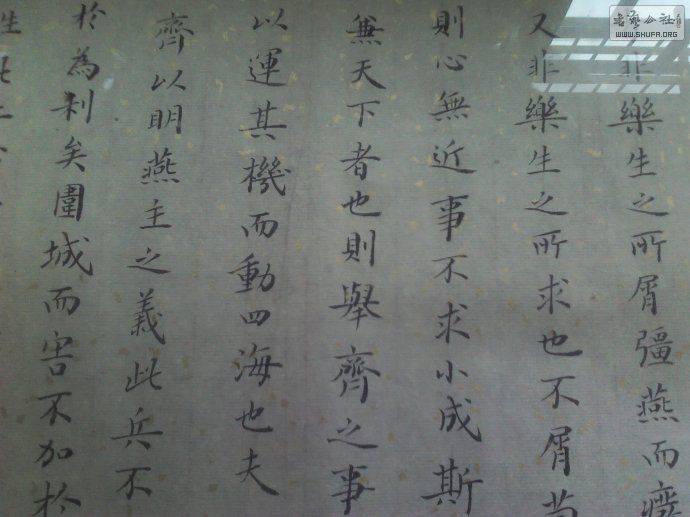 非樂生之所屑彊燕而廢
又非樂生之所求也不屑苟
則心無近事不求小成斯
無天下者也則舉齊之事
以運其機而動四海也夫
齊以明燕主之義此兵不
於為利矣圍城而害不加於
生此
书艺公社
WWW.SHUFA.ORG